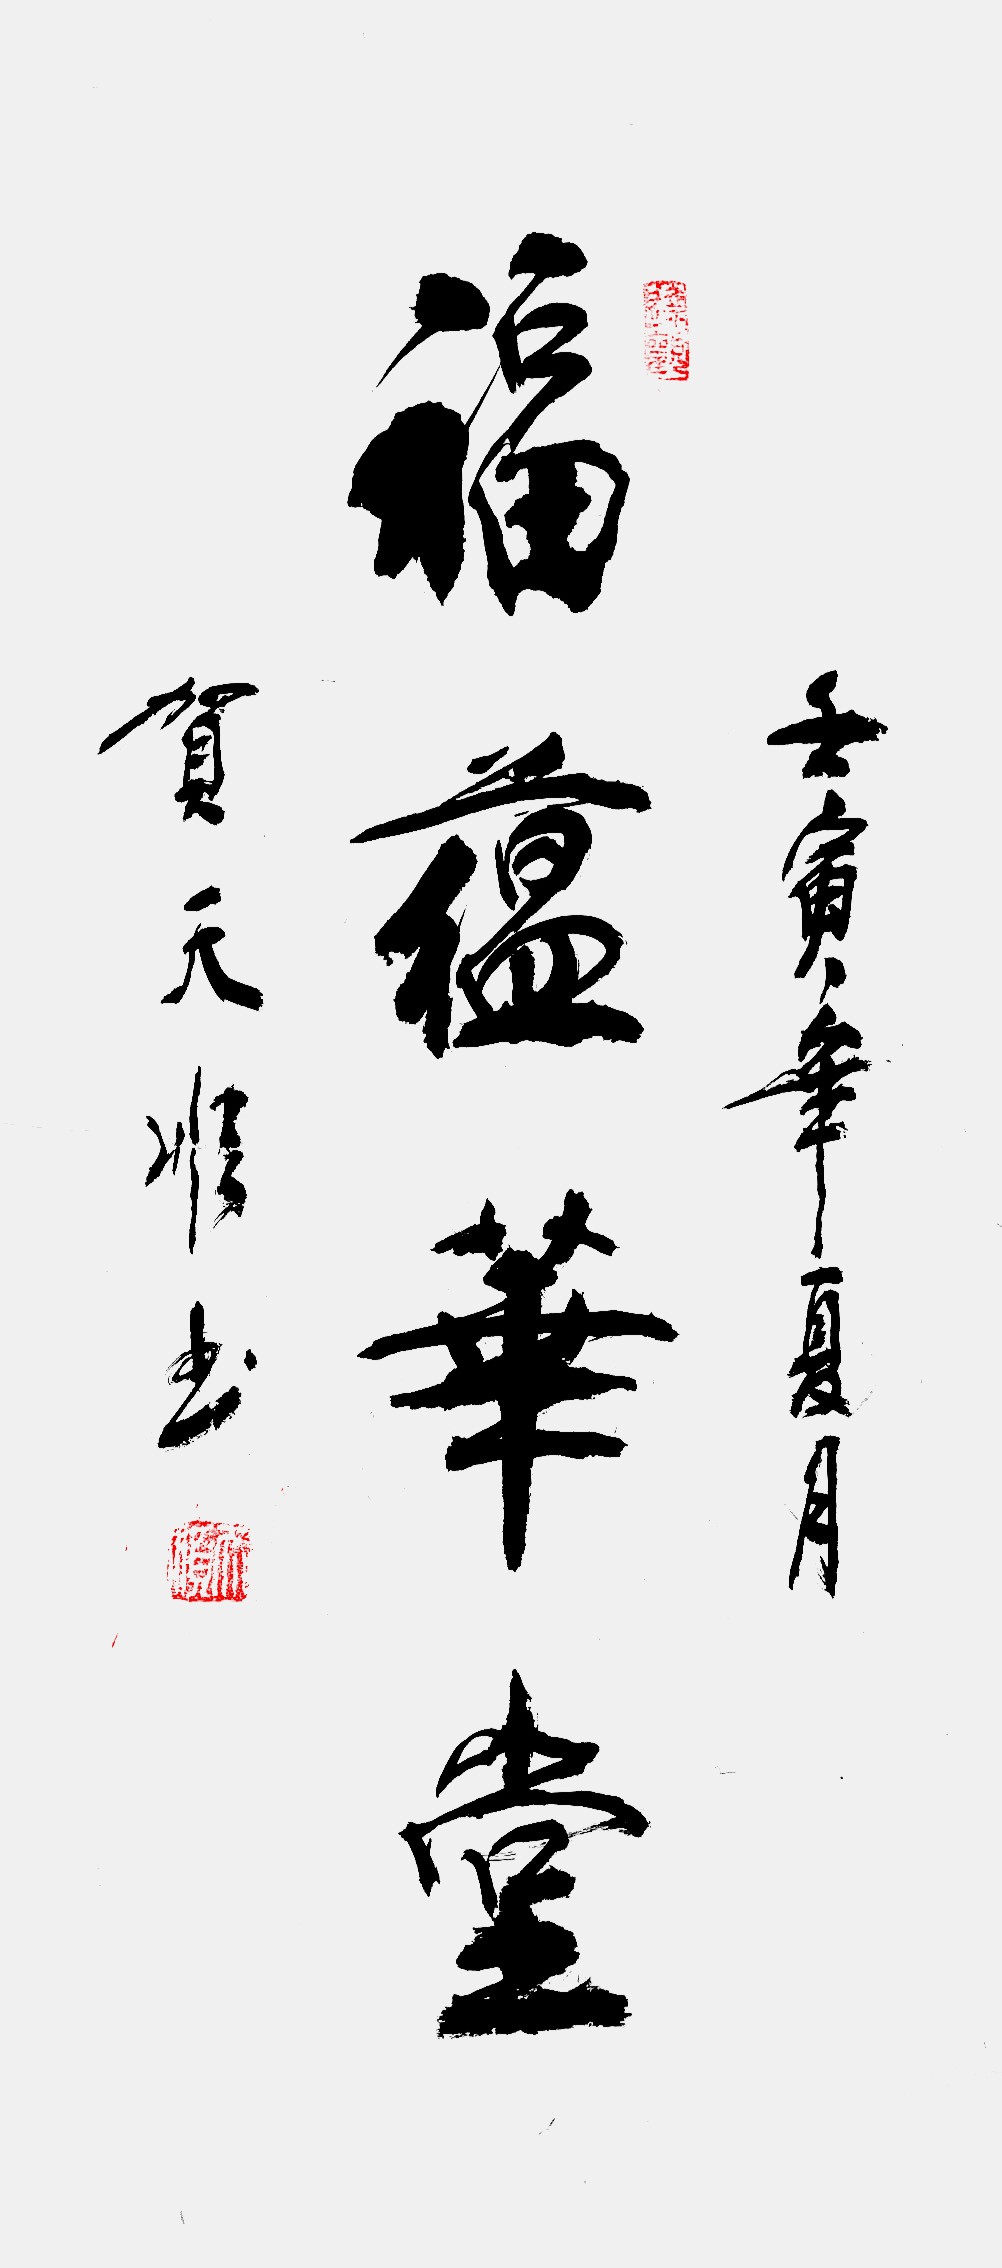 壬寅年夏月
福蕴華堂
賀天順书